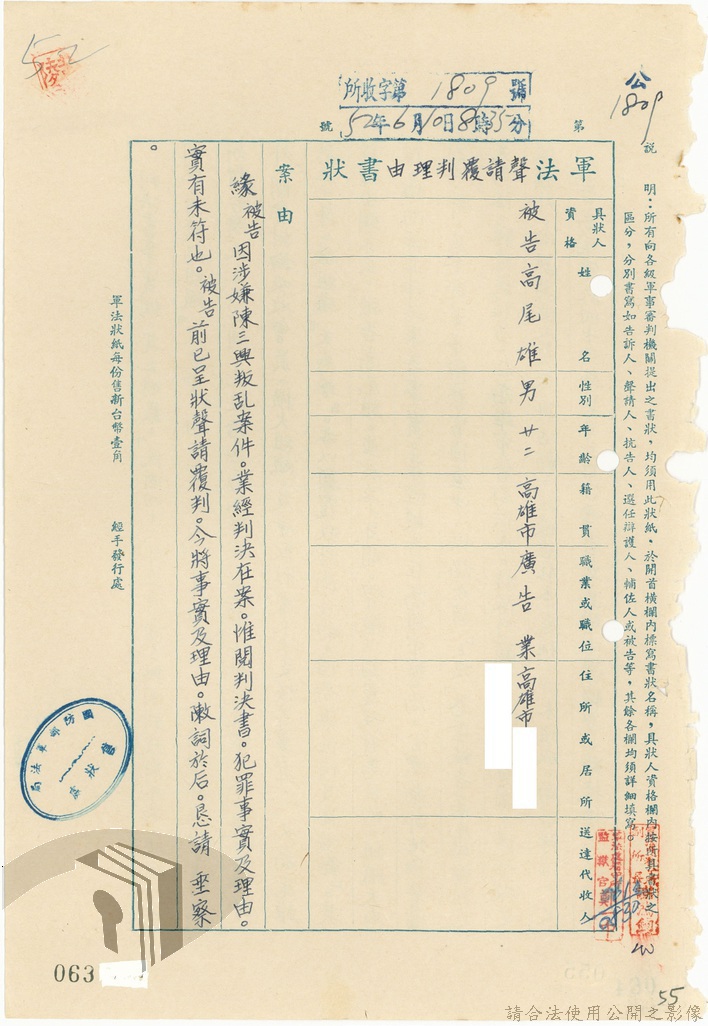 公
1809
所收字第1809號
第52年6月10日8時35分號
說明：所有向各級軍事審判機關提出之書狀，均須用此狀紙，於開首橫欄內標寫書狀名稱，具狀人資格欄內按所具書狀之
區分，分別書寫如告訴人、聲請人、抗告人、選任辯護人、輔佐人或被告等，其餘各欄均須詳細填寫。
軍法聲請覆判理由書狀
具狀人資格
姓名
性別
年齡
籍貫
職業或職位
住所或居所
送達代收人
被告
高尾雄
男
廿二
高雄市
廣告業
高雄市
案由
緣被告因涉嫌陳三興叛乱案件。業經判決在案。惟閱判決書。犯罪事實及理由。
實有未符也。被告前已呈狀聲請覆判。今將事實及理由。敶詞於后。恳請 垂察
。
軍法狀紙每份售新台幣壹角
經手發行處
國防部軍法局
售狀處
監獄官
0830
063
55
請合法使用公開之影像